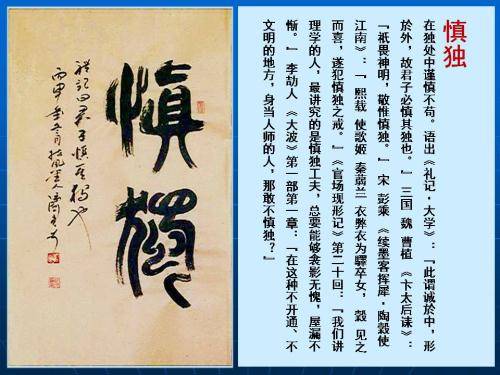 慎独
在独处中谨慎不苟。语出《礼记·大学》：「此谓诚於中，形
於外，故君子必慎其独也。」三国 魏 曹植 《卞太后诔》：
「祇畏神明，敬惟慎独。」宋 彭乘 《续墨客挥犀·陶穀使
江南》：「 熙载 使歌姬 秦蒻兰 衣弊衣为驿卒女，穀 见之
而喜，遂犯慎独之戒。」《官场现形记》第二十回：「我们讲
理学的人，最讲究的是慎独工夫，总要能够衾影无愧，屋漏不
惭。」 李劼人 《大波》第一部第一章：「在这种不开通、不
文明的地方，身当人师的人，那敢不慎独？」
慎獨
礼记曰君子慎其独也
丙申